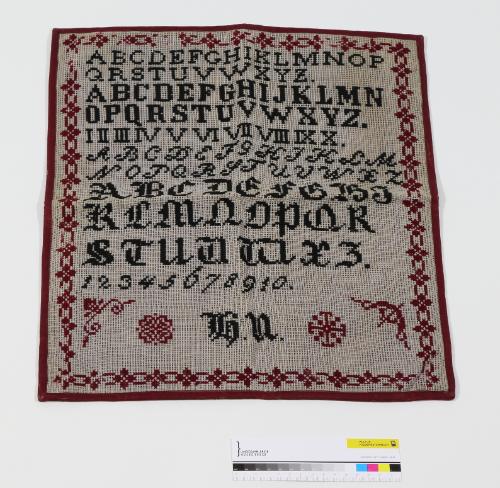 ABCDEFGHIJKLMNOP
QRSTUVWXYZ.
ABCDEFGHIJKLMN
OPQRSTUVWXYZ.
I II III IV V VI VII VIII IX X.
ABCDEFGHIJKLM
NOPQRSTUVWXZ
ABCDEFGHIJ
KLMNOPQR
STUVWXZ.
12345678910.
H.U.